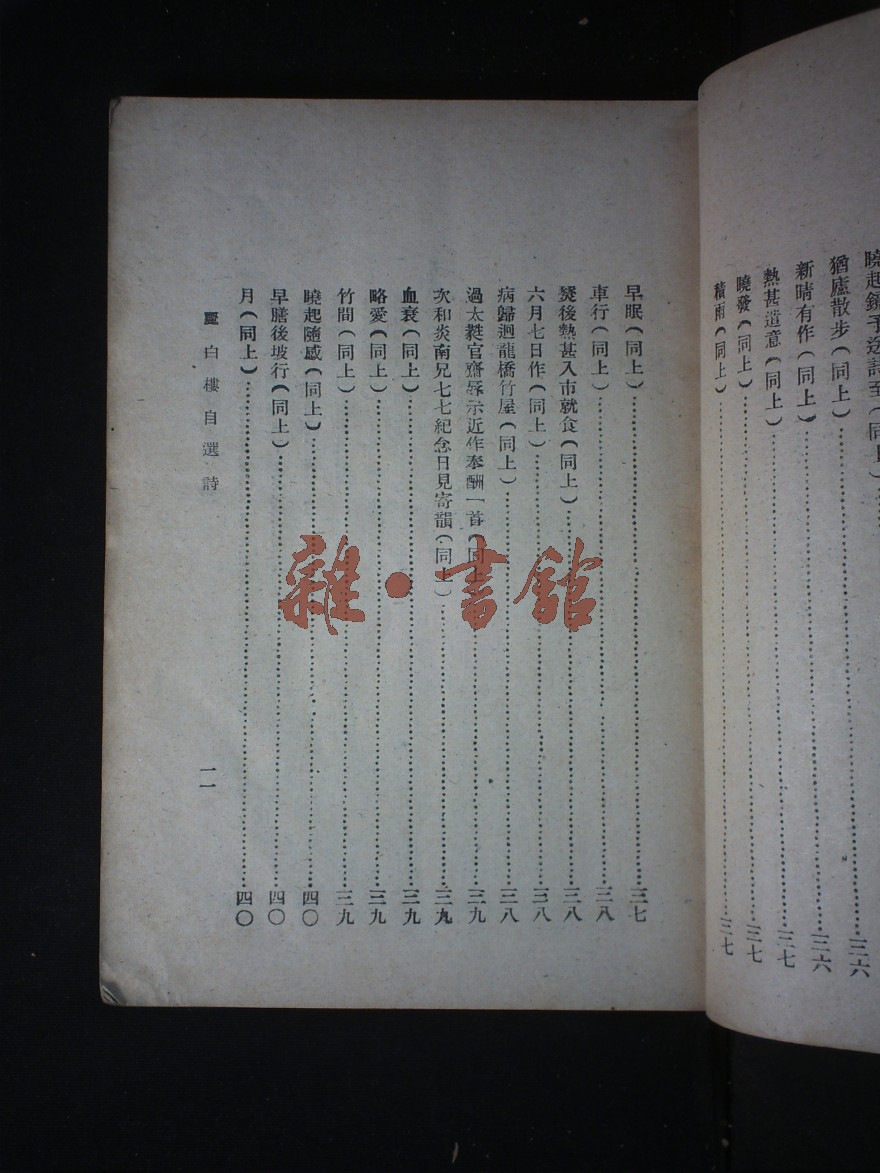 曉起予送詩至(同上)
猶廬散步(同上)……三六
新晴有作(同上)……三六
熱甚遣意(同上)……三七
曉發(同上)……三七
積雨(同上)……三七
早眠(同上)……三七
車行(同上)……三八
燹後熱甚入市就食(同上)……三八
六月七日作(同上)……三八
病歸迴龍橋竹屋(同上)……三八
過太蕤官齋辱示近作奉酬一首(同上)……三九
次和炎南兄七七紀念日見寄韻(同上)……三九
血衰(同上)……三九
略愛(同上)……三九
竹間(同上)……三九
曉起隨感(同上)……四〇
早膳後坡行(同上)……四〇
月(同上)……四〇
麗白樓自選詩 一一
雜·書館